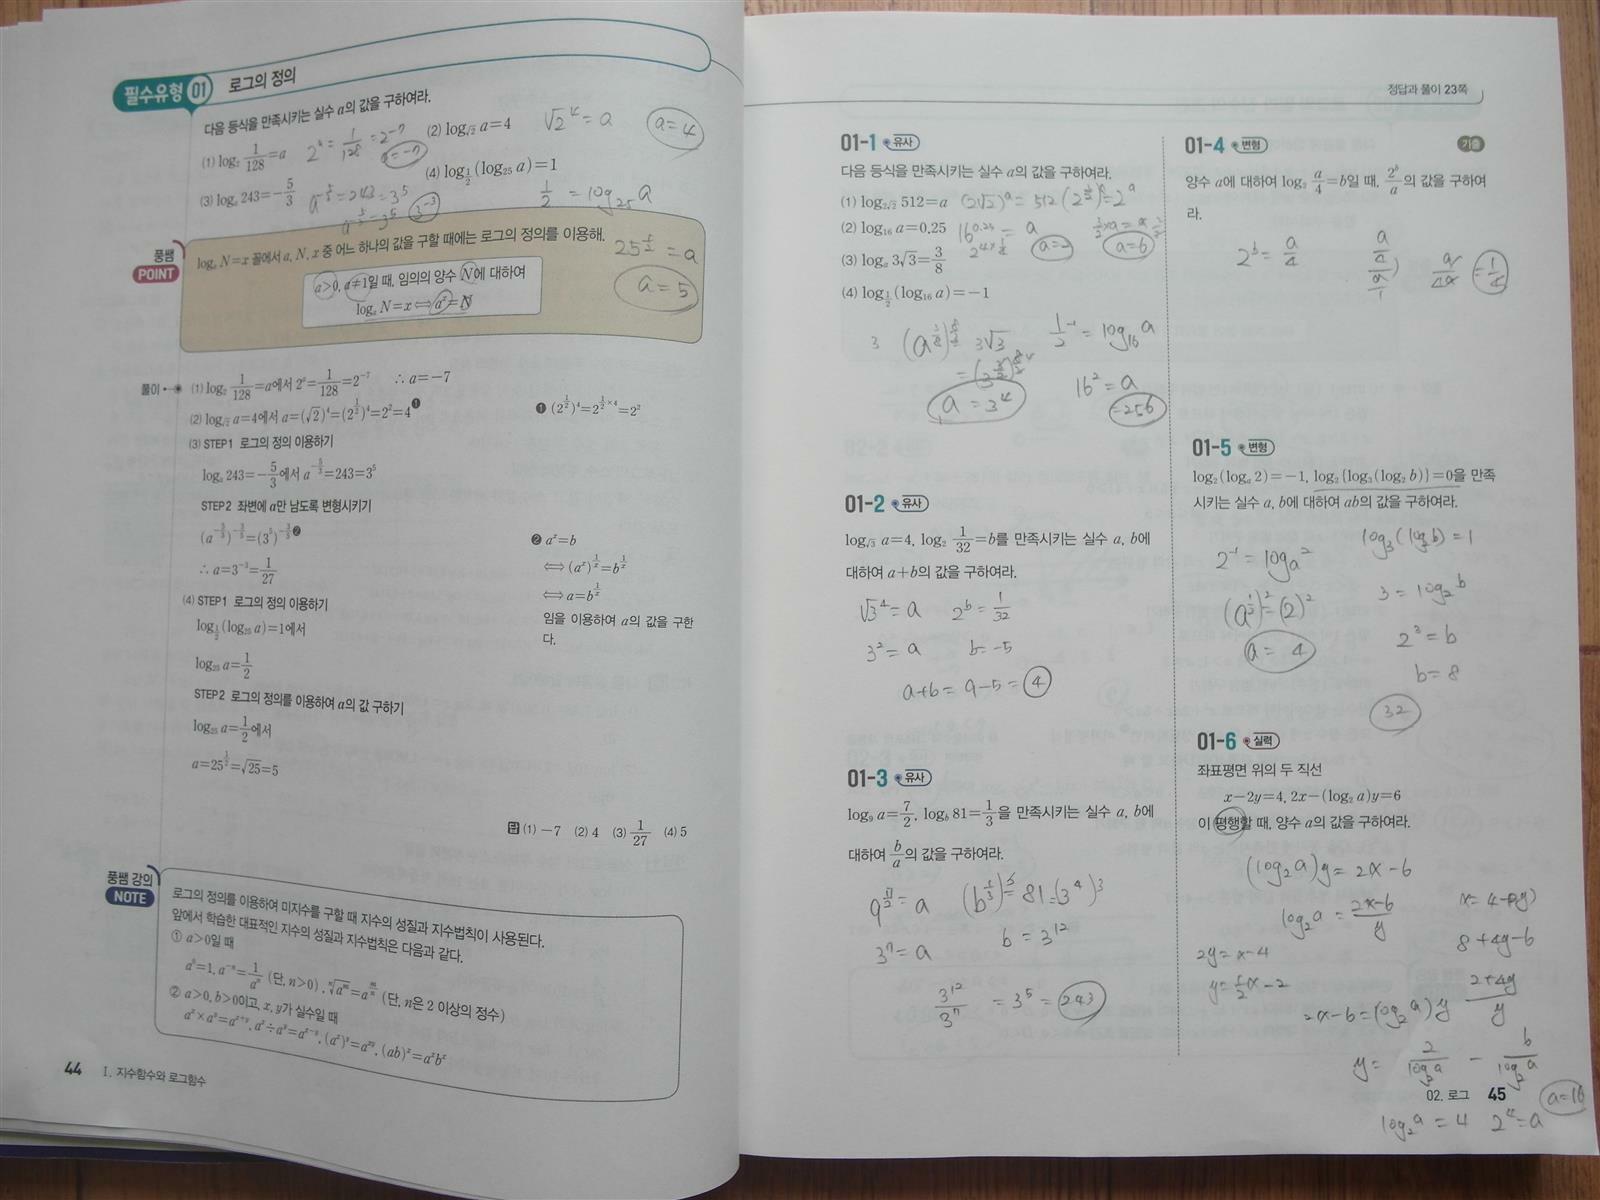 필수유형 01 로그의 정의
다음 등식을 만족시키는 실수 a의 값을 구하여라.
(1) log₂ 1/128 = a 2^a = 1/128 = 2^-7 a=-7 (2) log_√2 a=4 √2^4 = a a=4
(3) log_a 243 = -5/3 a^-5/3 = 243 = 3^5 (4) log_1/2 (log₂₅ a)=1
a^-5/3 = 3^5 3^-3 1/2 = log₂₅ a
풍쌤 POINT
log_a N=x 꼴에서 a, N, x 중 어느 하나의 값을 구할 때에는 로그의 정의를 이용해.
25^1/2 = a
a>0, a≠1일 때, 임의의 양수 N에 대하여
a = 5
log_a N=x ⟺ a^x=N
풀이 (1) log₂ 1/128 = a에서 2^a = 1/128 = 2^-7 ∴ a=-7
(2) log_√2 a=4에서 a=(√2)^4=(2^1/2)^4=2²=4 ❶ ❶ (2^1/2)^4=2^1/2×4=2²
(3) STEP1 로그의 정의 이용하기
log_a 243=-5/3에서 a^-5/3=243=3^5
STEP2 좌변에 a만 남도록 변형시키기
(a^-5/3)^-3/5=(3^5)^-3/5 ❷
∴ a=3^-3=1/27
❷ a^x=b
⟺ (a^x)^1/x=b^1/x
⟺ a=b^1/x
임을 이용하여 a의 값을 구한
다.
(4) STEP1 로그의 정의 이용하기
log_1/2 (log₂₅ a)=1에서
log₂₅ a=1/2
STEP2 로그의 정의를 이용하여 a의 값 구하기
log₂₅ a=1/2에서
a=25^1/2=√25=5
답 (1) -7 (2) 4 (3) 1/27 (4) 5
풍쌤 강의 NOTE
로그의 정의를 이용하여 미지수를 구할 때 지수의 성질과 지수법칙이 사용된다.
앞에서 학습한 대표적인 지수의 성질과 지수법칙은 다음과 같다.
① a>0일 때
a^0=1, a^-n=1/a^n (단, n>0), ⁿ√a^m=a^m/n (단, n은 2 이상의 정수)
② a>0, b>0이고, x, y가 실수일 때
a^x×a^y=a^x+y, a^x÷a^y=a^x-y, (a^x)^y=a^xy, (ab)^x=a^x b^x
44 I. 지수함수와 로그함수
정답과 풀이 23쪽
01-1 유사
다음 등식을 만족시키는 실수 a의 값을 구하여라.
(1) log_2√2 512=a (2√2)^a = 512
(2) log₁₆ a=0.25 16^0.25 = a a=2 a=6
(3) log_a 3√3=3/8
(4) log_1/2 (log₁₆ a)=-1
3 3√3 1/2^-1 = log₁₆ a
16² = a
a = 3^4 =256
01-2 유사
log_√3 a=4, log₂ 1/32=b를 만족시키는 실수 a, b에
대하여 a+b의 값을 구하여라.
√3^4 = a 2^b = 1/32
3² = a b=-5
a+b = 9-5 = 4
01-3 유사
log₉ a=7/2, log_b 81=1/3을 만족시키는 실수 a, b에
대하여 b/a의 값을 구하여라.
9^7/2 = a (b^1/3)^3 = 81=(3^4)^3
3^7 = a b = 3^12
3^12/3^7 = 3^5 = 243
01-4 변형 기출
양수 a에 대하여 log₂ a/4=b일 때, 2^b/a의 값을 구하여
라.
2^b = a/4 a/4 / a/1 a/4a = 1/4
01-5 변형
log₂(log_a 2)=-1, log₂{log₃(log₂ b)}=0을 만족
시키는 실수 a, b에 대하여 ab의 값을 구하여라.
2^-1 = log_a 2 log₃(log₂b)=1
(a^1/2)²=(2)² 3 = log₂ b
a = 4 2³ = b
b = 8
32
01-6 실력
좌표평면 위의 두 직선
x-2y=4, 2x-(log₂ a)y=6
이 평행할 때, 양수 a의 값을 구하여라.
(log₂a)y = 2x-6
log₂a = 2x-6/y
8+4y-6
2y=x-4
y=1/2x-2 2+4y/y
2x-6=(log₂a)y
y= 2/log₂a - 6/log₂a
02. 로그 45 a=16
log₂a = 4 2^4=a